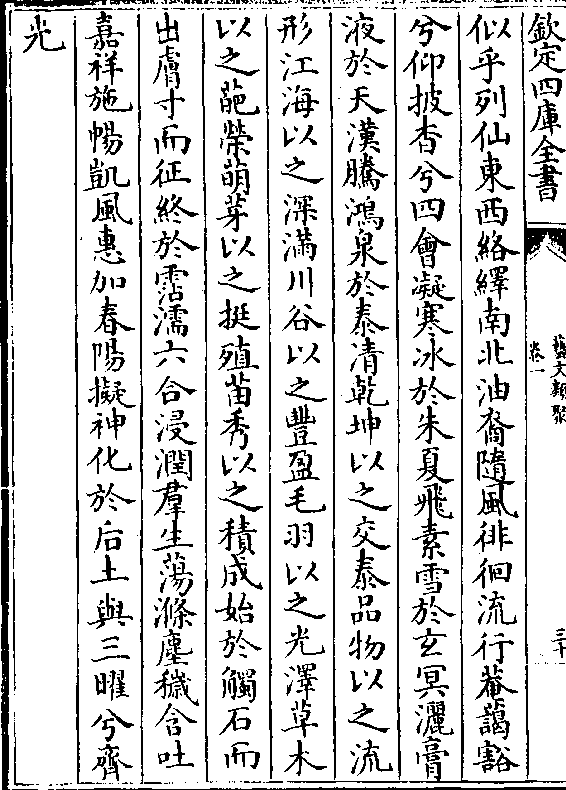 欽定四庫全書
藝文類聚
卷一
三十
似乎列仙東西絡繹南北油裔隨風徘徊流行菴藹豁
兮仰披杳兮四會凝寒冰於朱夏飛素雪於玄冥灑膏
液於天漢騰鴻泉於泰清乾坤以之交泰品物以之流
形江海以之深滿川谷以之豐盈毛羽以之光澤草木
以之葩榮萌芽以之挺殖苗秀以之積成始於觸石而
出膚寸而征終於霑濡六合浸潤羣生蕩滌塵穢含吐
嘉祥施暢凱風惠加春陽擬神化於后土與三曜兮齊
光